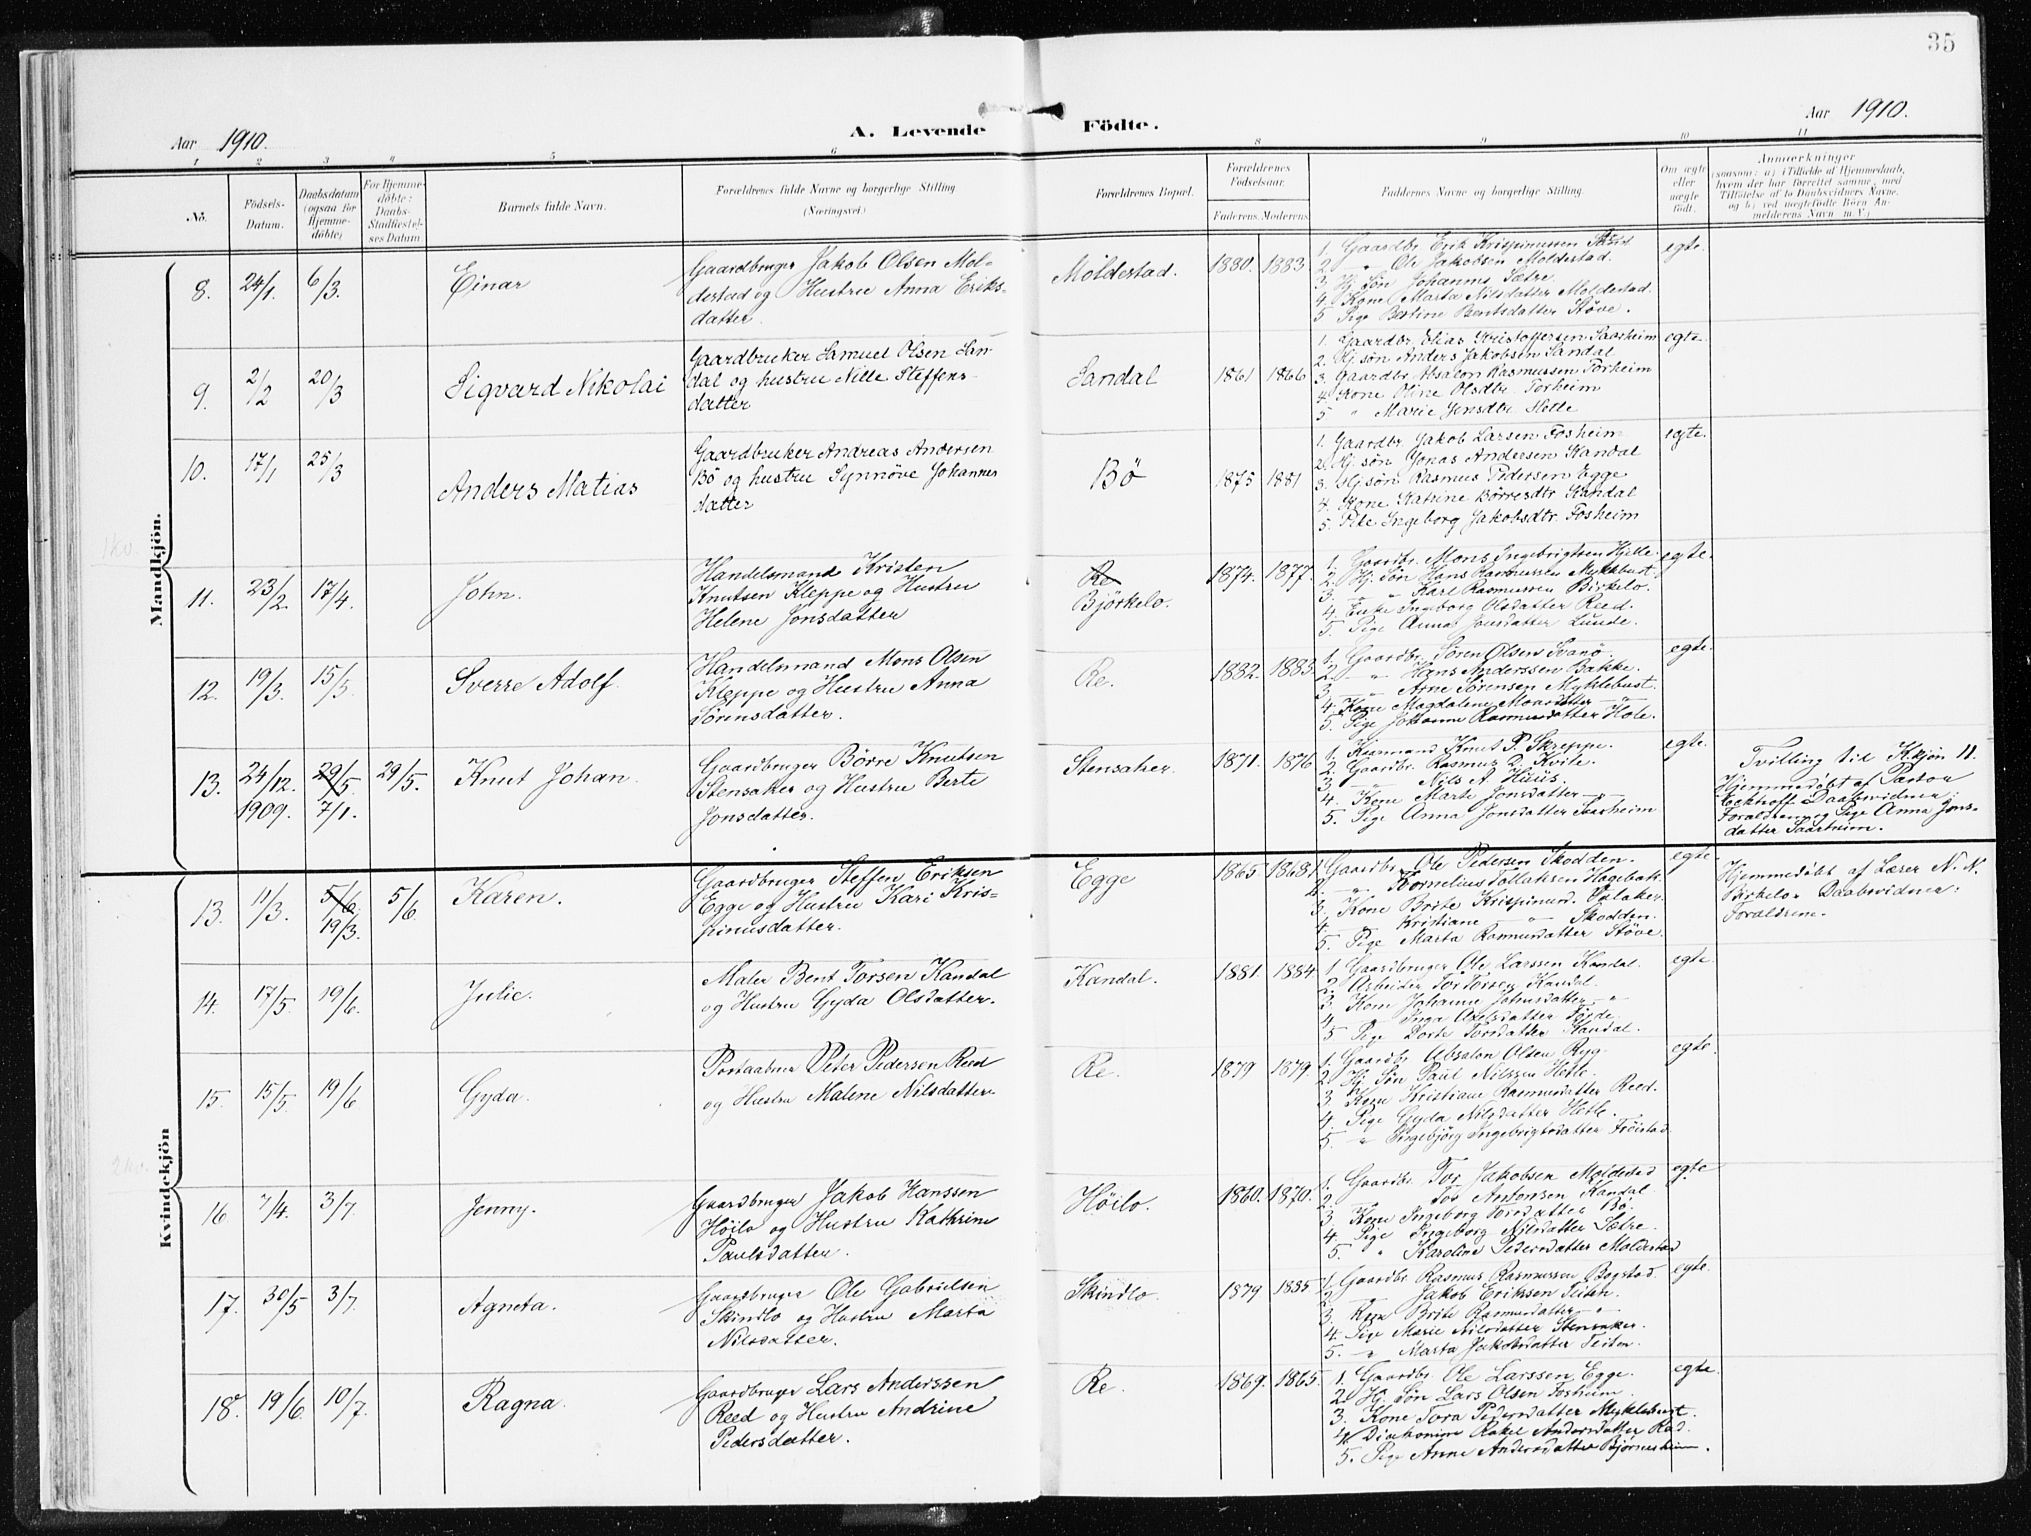 35
Aar 1910.
A. Levende Födte.
Aar 1910.
1 2 3 4 5 6 8 9 10 11
No.
Födsels-
Datum.
Daabsdatum
(ogsaa for
Hjemme-
döbte)
For Hjemme-
döbte:
Daabs-
Stadfæstel-
ses Datum
Barnets fulde Navn.
Forældrenes fulde Navne og borgerlige Stilling
(Næringsvei.)
Forældrenes Bopæl.
Forældrenes
Födselsaar.
Faderens. Moderens.
Faddernes Navne og borgerlige Stilling.
Om ægte
eller
uægte
födt.
Anmærkninger
(saasom: a) i Tilfælde af Hjemmedaab,
hvem der har forrettet samme, med
Tilföielse af to Daabsvidners Navne,
og b) ved uægtefödte Börn An-
melderens Navn m. V.)
Mandkjön.
8. 24/1. 6/3. Einar
Gaardbruger Jakob Olsen Mol-
destad og Hustru Anna Eriks-
datter.
Moldestad. 1880. 1883
1. Gaardbr. Erik Krispinussen
2. " Ole Jakobsen Moldestad.
3. Hj. Søn Johannes Sætre
4. Kone Marta Nilsdatter Moldestad.
5 Pige Bertine Bentsdatter Støve.
egte.
9. 2/2 20/3 Sigvard Nikolai
Gaardbruker Samuel Olsen San-
dal og hustru Nille Steffens-
datter
Sandal 1861 1866
1. Gaardbr. Elias Kristoffersen Saasheim
2. Hj. søn Anders Jakobsen Sandal
3. Gaardbr. Absalon Rasmussen Forheim
4. Kone Oline Olsdtr. Forheim
5 " Marie Jensdtr. Hetle
egte.
10. 17/1 25/3 Anders Matias
Gaardbruker Andreas Andersen
Bö og hustru Synnöve Johannes
datter
Bö 1875 1881
1. Gaardbr. Jakob Larsen Fosheim
2. Hj. søn Jonas Andersen Kandal
3. Hj. søn Rasmus Pedersen Egge
4. Kone Katrine Börresdtr. Kandal
5. Pike Ingeborg Jakobsdtr. Fosheim
egte.
1kv.
11. 23/2. 17/4. John.
Handelsmand Kristen
Knutsen Kleppe og Hustru
Helene Jonsdatter
Re
Bjørkelo.
1874. 1877.
1. Gaardbr. Mons Ingebrigtsen Hjelle.
2. Hj. Søn Hans Rasmussen Myklebust
3. " " Karl Rasmussen Birkelo.
4. Enke Ingeborg Olsdatter Reed.
5. Pige Anna Jonsdatter Lunde.
egte.
12. 19/3. 15/5. Sverre Adolf.
Handelsmand Mons Olsen
Kleppe og Hustru Anna
Sörensdatter.
Re. 1882. 1883.
1. Gaardbr. Sören Olsen Svanö.
2. " Hans Anderssen Bakke.
3. " Arne Sörensen Myklebust.
4. Kone Magdalene Monsdatter "
5. Pige Johanne Rasmusdatter Hole.
egte.
13. 24/12. 1909. 29/5. 7/1. 29/5. Knut Johan.
Gaardbruger Börre Knutsen
Stensaker og Hustru Berte
Jonsdatter.
Stensaker. 1871. 1876
1. Knut P. Skreppe.
2. Gaardbr. Rasmus D. Kvile.
3. " Nils A. Husüs.
4. Kone Marte Jonsdatter "
5. Pige Anna Jonsdatter Saasheim
egte.
Tvilling til Kkjön 11.
Hjemmedöbt af Pastor
Eckhoff. Daabsvidner:
Foraldrene og Pige Anna Jons-
datter Saasheim.
Kvindekjön
13. 11/3. 5/6 19/3. 5/6. Karen.
Gaardbruger Steffen Eriksen
Egge og Hustru Kari Kris-
pinusdatter.
Egge 1865 1868.
1. Gaardbr. Ole Pedersen Skodden.
2. " Kornelius Tollaksen Hagebak.
3. Kone Brite Krispinusd.
4. " Kristiane " Skodden.
5. Pige Marta Rasmusdatter Støve.
egte.
Hjemmedöbt af Lærer N. N.
Birkelo. Daabsvidner:
Foraldrene.
14. 17/5. 19/6. Julie.
Maler Bent Torsen Kandal
og Hustru Gyda Olsdatter.
Kandal. 1881. 1884.
1. Gaardbruger Ole Larssen Kandal.
2. Arbeider Tor Torsen Kandal.
3. Kone Johanne Johnsdatter "
4. " Inga Axelsdatter Förde.
5 Pige Dorte Torsdatter Kandal.
egte.
15. 15/5. 19/6 Gyda.
Postaabner Peter Pedersen Reed
og Hustru Malene Nilsdatter.
Re. 1879 1879.
1. Gaardbr. Absalon Olsen Ryg.
2. Hj. Søn Paul Nilssen Hetle.
3 Kone Kristiane Rasmusdatter Reed.
4. Pige Gyda Nilsdatter Hetle.
5. " Ingebjörg Ingebrigtsdatter Fröistad.
egte.
2kv.
16 7/4. 3/7. Jenny.
Gaardbruger Jakob Hanssen
Höilo og Hustru Kathrine
Paulsdatter.
Höilo. 1860. 1870.
1. Gaardbr. Tor Jakobsen Moldestad
2. " Tor Antonsen Kandal.
3. Kone Ingeborg Torsdatter Bö.
4. Pige Ingeborg Nilsdatter Sætre.
5. " Karoline Pedersdatter Moldestad
egte
17. 30/5 3/7. Agneta.
Gaardbruger Ole Gabrielsen
Skindlo og Hustru Marta
Nilsdatter.
Skindlo. 1879 1885
1. Gaardbr. Rasmus Rasmussen Bogstad.
2. " Jakob Eriksen Teiten.
3. Kone Brite Rasmusdatter "
4. Pige Marie Nilsdatter Stensaker.
5. " Marta Jakobsdatter Teiten.
egte.
18. 19/6. 10/7. Ragna.
Gaardbruger Lars Anderssen
Reed og Hustru Andrine
Pedersdatter.
Re. 1869. 1865.
1. Gaardbr. Ole Larssen Egge.
2. Hj. Søn Lars Olsen Fosheim.
3. Kone Tora Pedersdatter Myklebust.
4. Diakonisse Rakel Andersdatter Red.
5. Pige Anne Andersdatter Bjørnesheim.
egte.